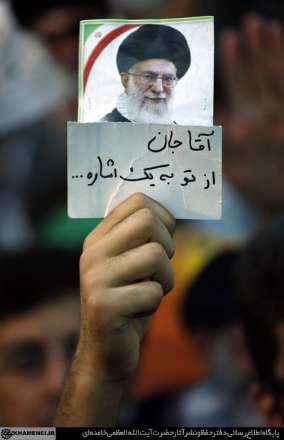 آقا جان
از تو به یک اشاره ...
KHAMENEI.IR
پایگاه اطلاع رسانی دفتر حفظ و نشر آثار حضرت آیت الله العظمی خامنه ای